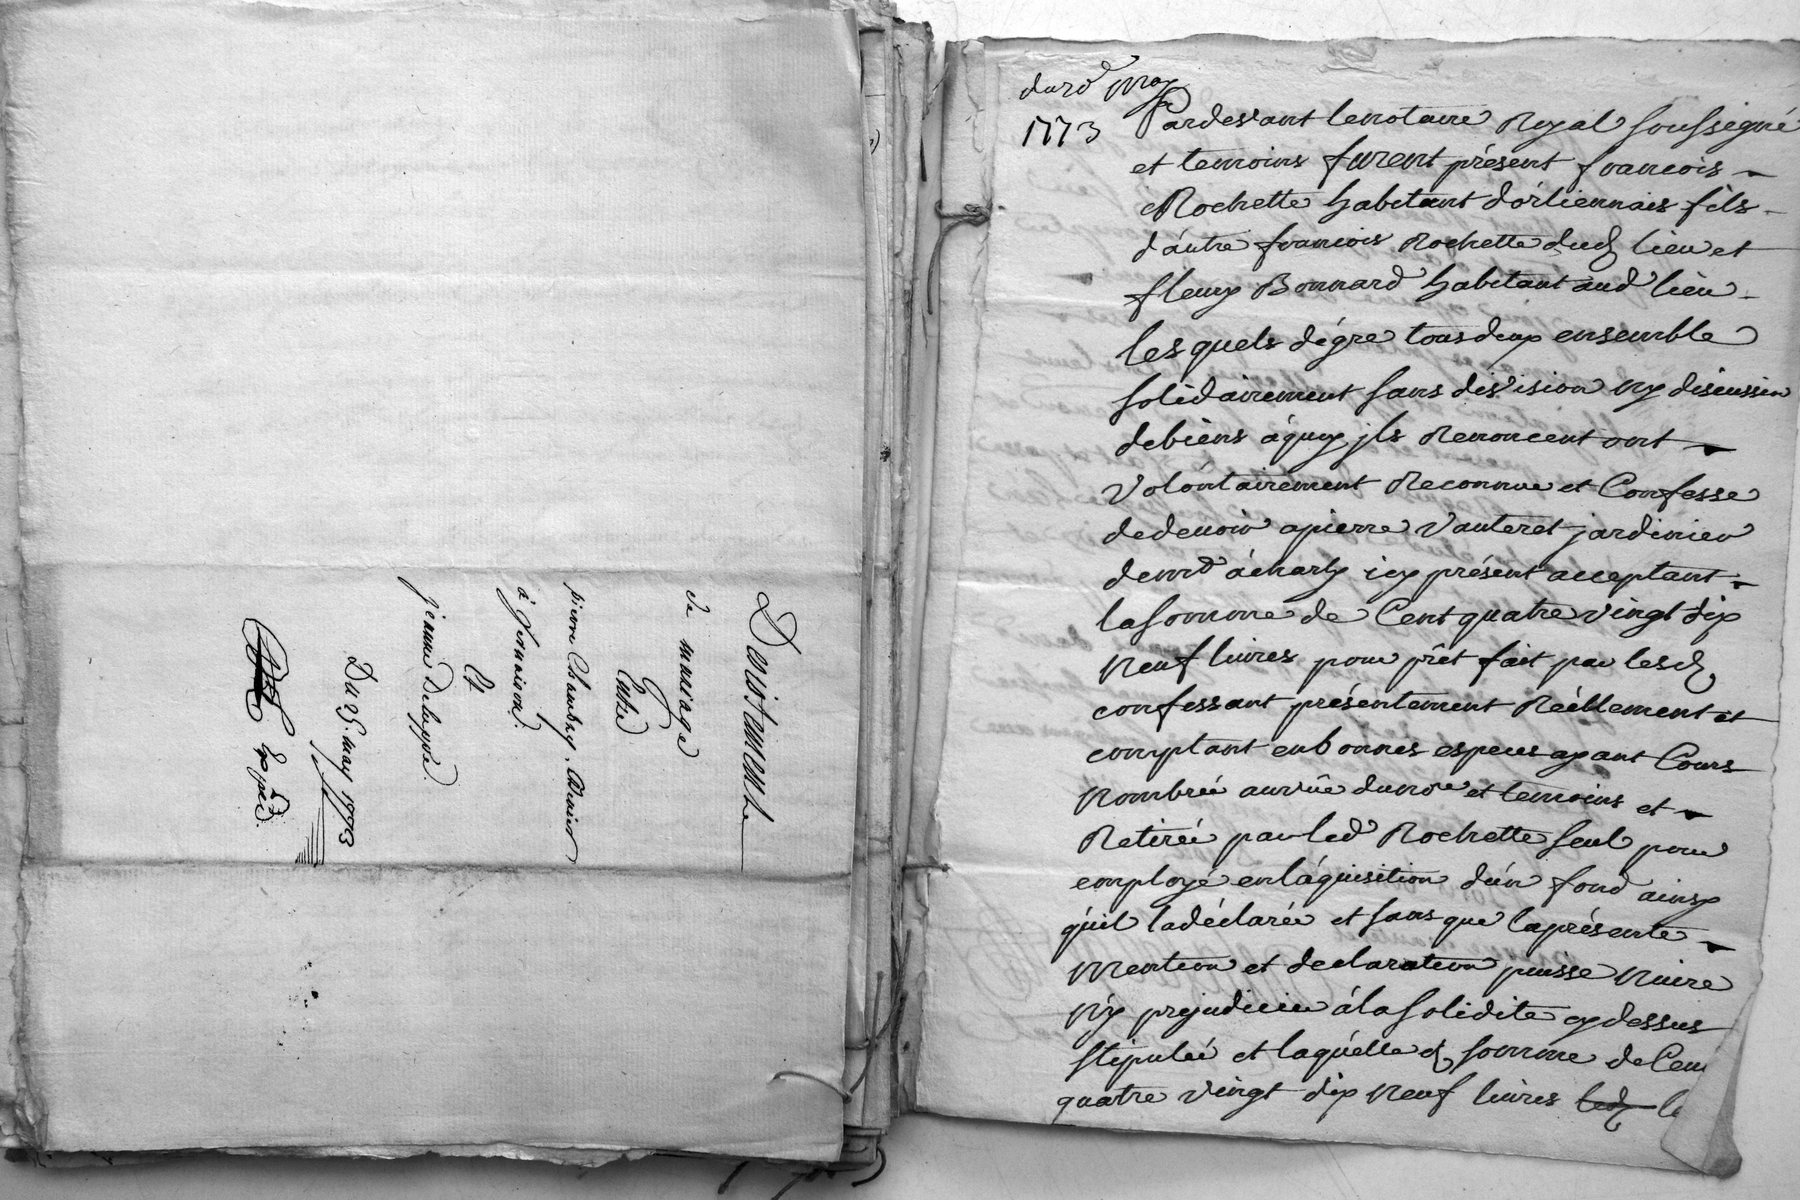 Desistement
de mariage
Entre
pierre Chambry,
à
Et
jeanne Delappré
Du 25. may 1773
Expéd.
may
1773
Pardevant lenotaire Royal soussigné
et temoins furent présent francois
Rochette habitant d'orliennais fils
d'autre francois Rochette dud lieu et
fleury Bonnard habitant aud lieu
lesquels dégre tous deux ensemble
solidairement sans division ny discussion
debiens áquoy jls Renoncent ont
volóntairement Reconnue et Confesse
dedevoir apierre Vauteret jardinier
demt ácharly icy présent acceptant
lasomme de Cent quatre vingt dix
Neuf livres pour prêt fait par lesd
confessant présentement Réellement et
comptant enbonnes especes ayant Cours
Nombrée auvüe dunore et temoins et
Retirée par led Rochette seul pour
employé enláquisition d'un fond ainsy
qúil ladéclarée et sans que laprésente
Mention et declaration puisse Nuire
Ny prejudicier álasolidite cydessus
stipulée et laquélle d somme de Cen
quatre vingt dix Neuf livres led le